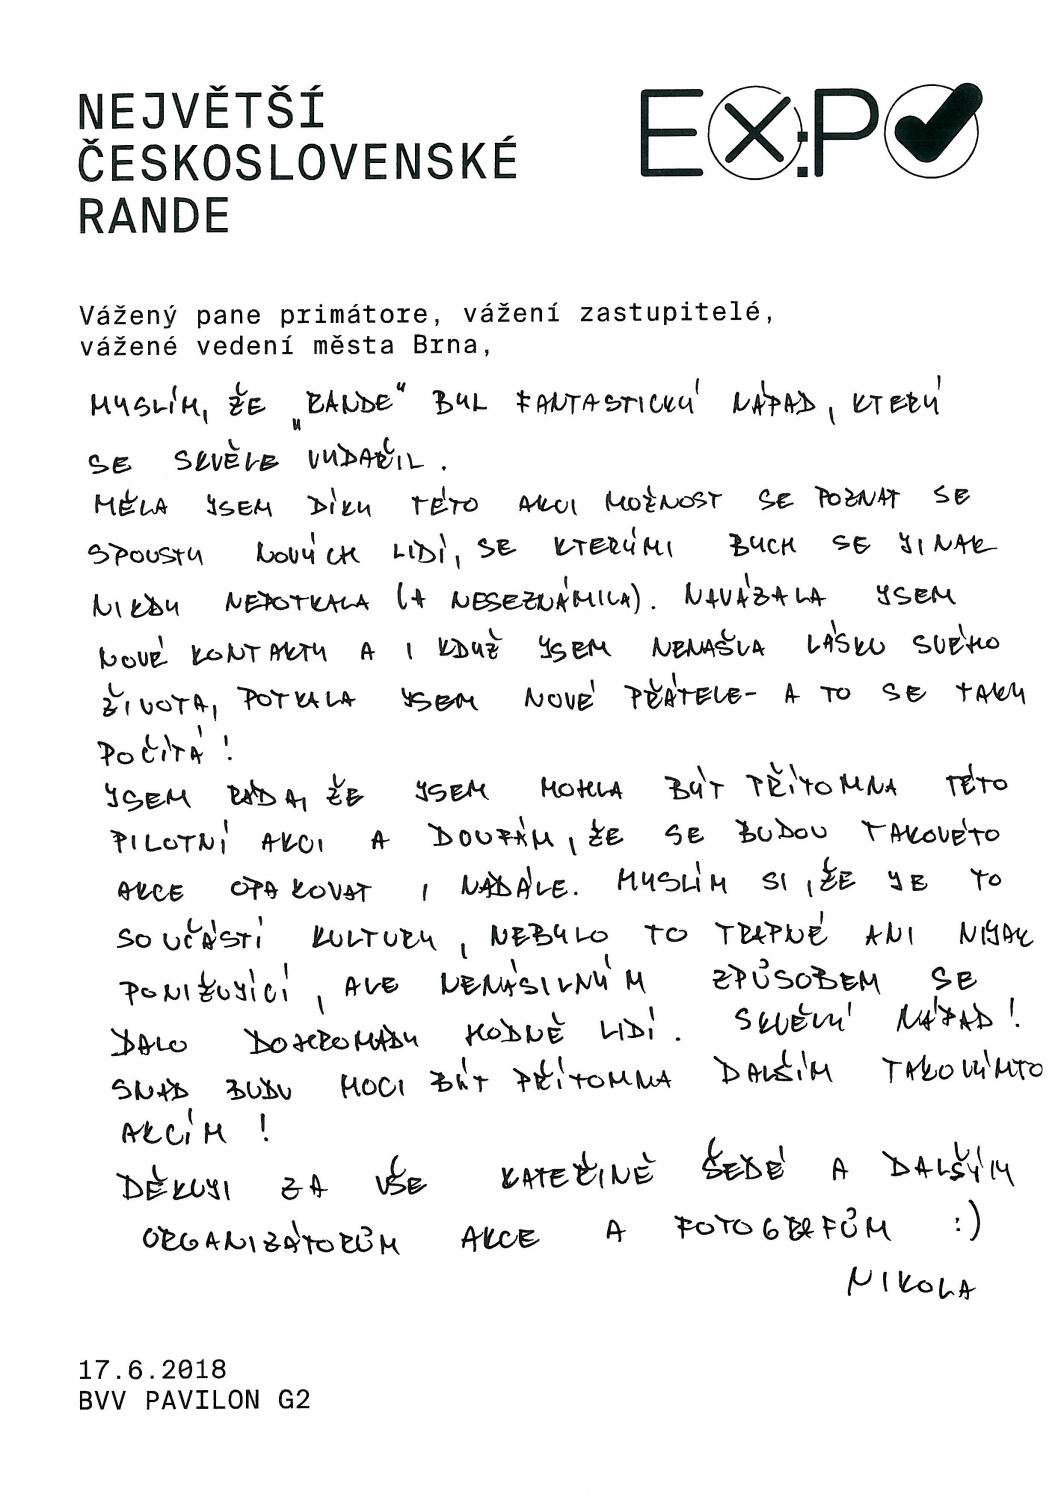 NEJVĚTŠÍ
ČESKOSLOVENSKÉ
RANDE
EX:PO
Vážený pane primátore, vážení zastupitelé,
vážené vedení města Brna,
MYSLÍM, ŽE „RANDE" BYL FANTASTICKÝ NÁPAD, KTERÝ
SE SKVĚLE VYDAŘIL.
MĚLA JSEM DÍKY TÉTO AKCI MOŽNOST SE POZNAT SE
SPOUSTU NOVÝCH LIDÍ, SE KTERÝMI BYCH SE JINAK
NIKDY NEPOTKALA (A NESEZNÁMILA). NAVÁZALA JSEM
NOVÉ KONTAKTY A I KDYŽ JSEM NENAŠLA LÁSKU SVÉHO
ŽIVOTA, POTKALA JSEM NOVÉ PŘÁTELE- A TO SE TAKY
POČÍTÁ!
JSEM RÁDA, ŽE JSEM MOHLA BÝT PŘÍTOMNA TÉTO
PILOTNÍ AKCI A DOUFÁM, ŽE SE BUDOU TAKOVÉTO
AKCE OPAKOVAT I NADÁLE. MYSLÍM SI, ŽE JE TO
SOUČÁSTÍ KULTURY, NEBYLO TO TRAPNÉ ANI NIJAK
PONIŽUJÍCÍ, ALE NENÁSILNÝM ZPŮSOBEM SE
DALO DOHROMADY HODNĚ LIDÍ. SKVĚLÝ NÁPAD!
SNAD BUDU MOCI BÝT PŘÍTOMNA DALŠÍM TAKOVÝMTO
AKCÍM!
DĚKUJI ZA VŠE KATEŘINĚ ŠEDÉ A DALŠÍM
ORGANIZÁTORŮM AKCE A FOTOGRAFŮM :)
NIKOLA
17.6.2018
BVV PAVILON G2